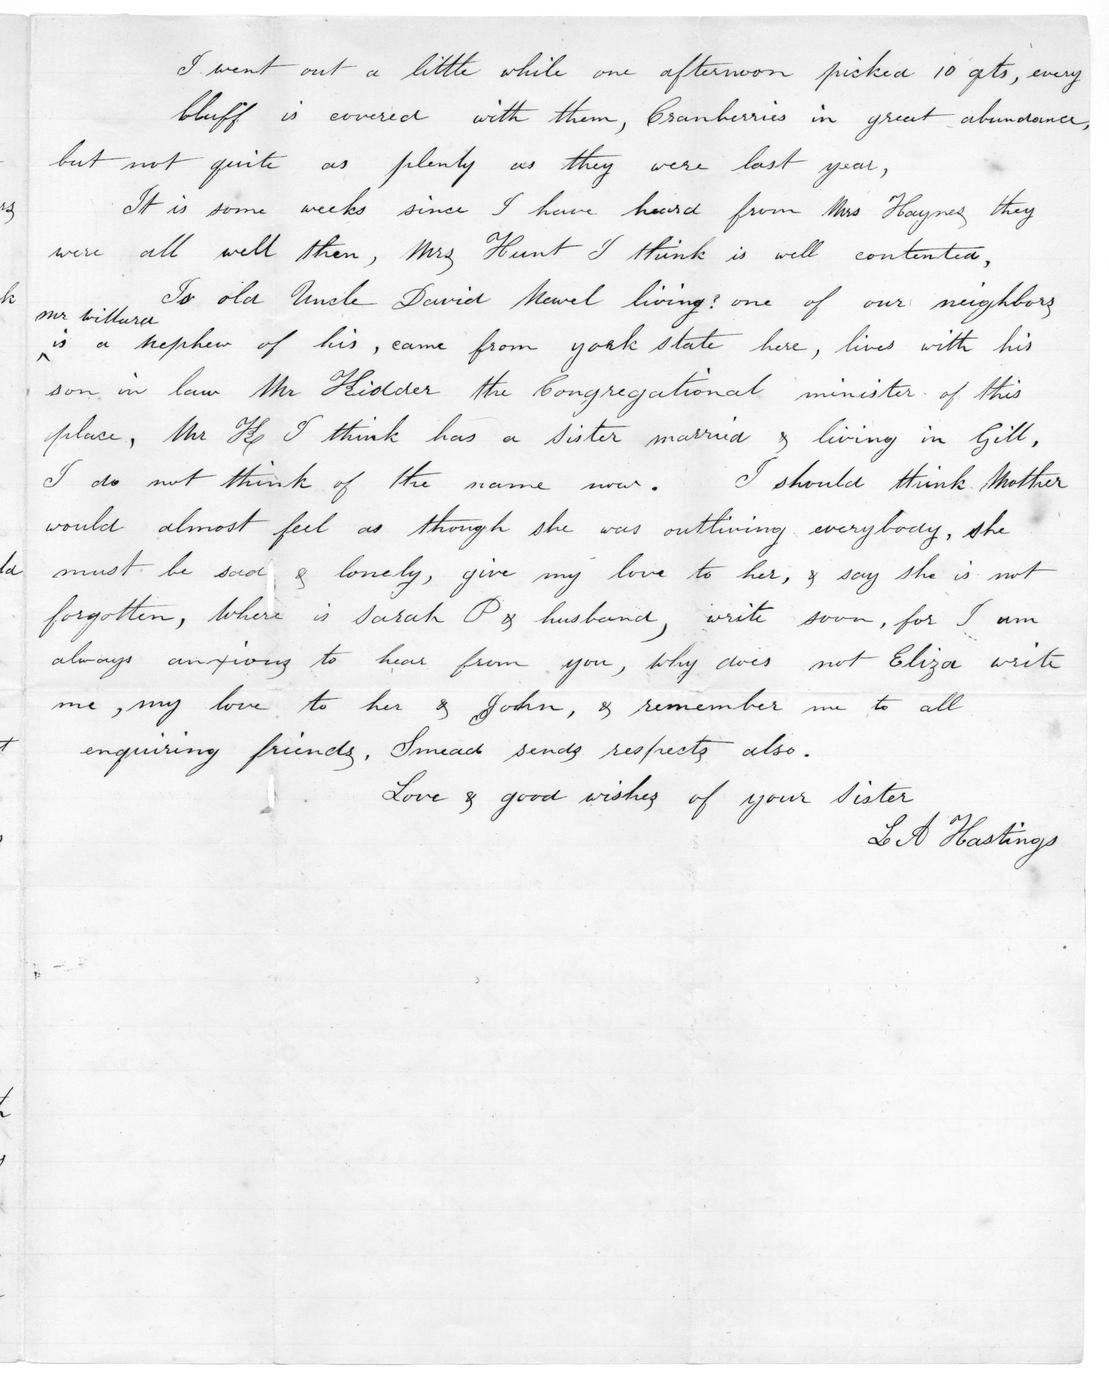 I went out a little while one afternoon picked 10 qts, every
bluff is covered with them, Cranberries in great abundance,
but not quite as plenty as they were last year,
It is some weeks since I have heard from Mrs Haynes they
were all well then, Mrs Hunt I think is well contented,
Is old Uncle David Newel living? one of our neighbors
Mr Willard
^ is a nephew of his, came from york state here, lives with his
son in law Mr Kidder the Congregational minister of this
place, Mr K I think has a sister married & living in Gill,
I do not think of the name now. I should think Mother
would almost feel as though she was outliving everybody, she
must be sad & lonely, give my love to her, & say she is not
forgotten, Where is Sarah P & husband, write soon, for I am
always anxious to hear from you, Why does not Eliza write
me, my love to her & John, & remember me to all
enquiring friends, Smead sends respects also.
Love & good wishes of your sister
L A Hastings